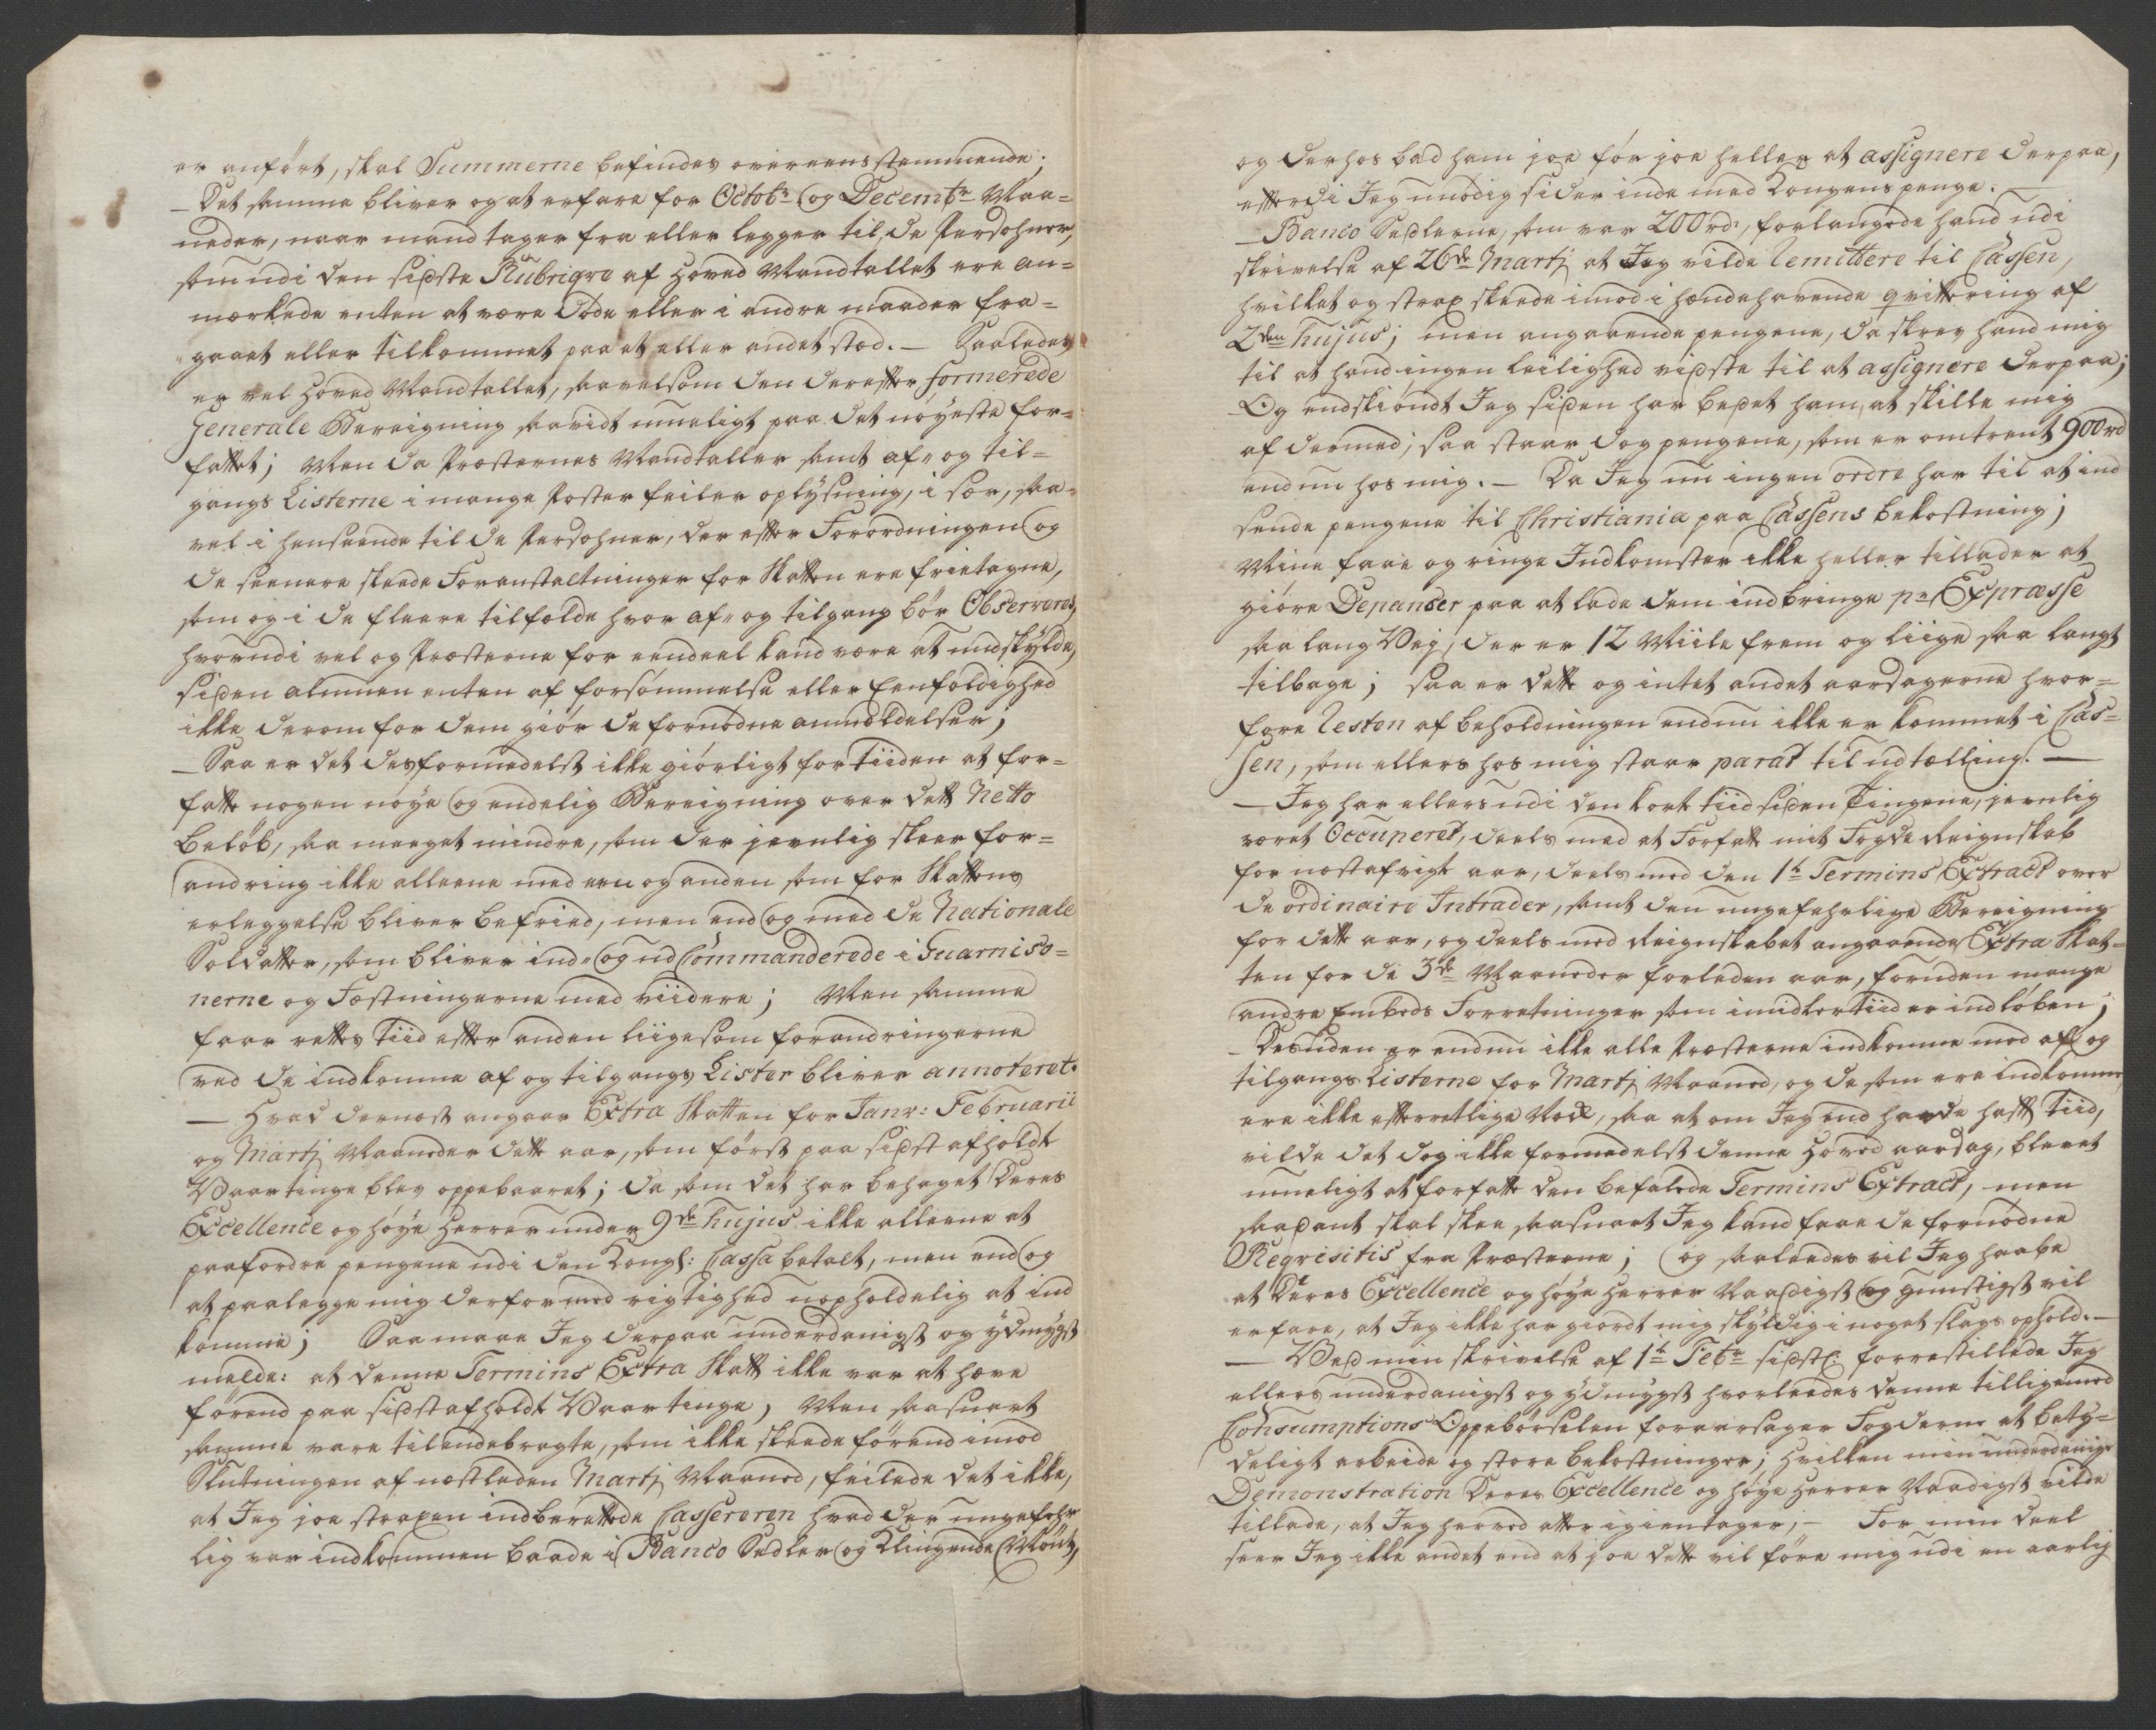 er anført, skal Summerne befindes overeensstemmende;
– Det samme bliver og at erfare for Octobr og Decembr Maa-
neder, naar mand tager fra eller legger til, de Persohner,
som udi den sidste Rubriqve af Hoved Mandtallet ere an-
mærkede enten at være Døde eller i andre maader fra-
gaaet eller tilkommet paa et eller andet stæd. – Saaledes
er vel Hoved Mandtallet, saavelsom den derefter formerede
Generale Bereigning saavidt mueligt paa det nøyeste for-
fattet; Men da Præsternes Mandtaller samt af- og til-
gangs Listerne i mange Poster feiler oplysning, i sær, saa-
vel i henseende til de Persohner, der efter Forordningen og
de seenere skeede Foranstaltninger for Skatten ere frietagne,
som og i de fleere tilfælde hvor af- og tilgang bør Observeres,
hvorudi vel og Præsterne for eendeel kand være at undskylde,
siden almuen enten af forsømmelse eller Eenfoldighed
ikke derom for dem giør de fornødne anmeldelser;
– Saa er det desformedelst ikke giørligt for tiiden at for-
fatte nogen nøye og endelig Bereigning over dett Netto
Beløb, saa meeget mindre, som der jevnlig skeer for-
andring ikke alleene med een og anden som for Skattens
erleggelse bliver befried, men end og med de Nationale
Soldatter, som bliver ind- og ud Commanderede i Guarniso-
nerne og Fæstningerne med viidere; Men samme
faar rettes tiid efter anden liigesom forandringerne
ved de indkomne af og tilgangs Lister bliver annoteret.
– Hvad dernæst angaar Extra Skatten for Janv: Februarii
og Martj Maaneder dette aar, som først paa sidst afholdte
Vaartinge blev oppebaaret; da som det har behaget Deres
Excellence og høye Herrer under 9de hujus ikke alleene at
paafordre pengene udi den Kongl: Cassa betalt, men end og
at paalegge mig derfor med rigtighed uopholdelig at ind
komme; Saa maae Jeg derpaa underdanigst og ydmygst
melde: at denne Termins Extra Skatt ikke var at hæve
førend paa sidst afholdte Vaartinge, Men saasnart
samme vare tilendebragte, som ikke skeede førend imod
Slutningen af næstleden Martj Maaned, feilede det ikke,
at Jeg joe straxen indberettede Cassereren hvad der ungefehr
lig var indkommen baade i Banco Sedler og Klingende Mønt,
og derhos bad ham joe før joe heller at assignere derpaa,
efterdi Jeg unødig sider inde med Kongens penge. –
– Banco Sedlerne, som var 200rd, forlangede hand udi
skrivelse af 26de Martj at Jeg vilde remittere til Cassen,
hvilket og strax skeede imod i hændehavende qvittering af
2den hujus; men angaaende pengene, da skrev hand mig
til at hand ingen leilighed vidste til at assignere derpaa;
Og endskiøndt Jeg siden har bedet ham, at skille mig
af dermed; saa staar dog pengene, som er omtrent 900rd
endnu hos mig. – Da Jeg nu ingen ordre har til at ind
sende pengene til Christiania paa Cassens bekostning;
Mine faae og ringe Indkomster ikke heller tillader at
giøre Depanser paa at lade dem indbringe pr Expresse
saa lang Vej, der er 12 Miile frem og liige saa langt
tilbage; saa er dette og intet andet aarsagerne hvor-
fore resten af beholdningen endnu ikke er kommet i Cas-
sen, som ellers hos mig staar parat til udtælling. –
– Jeg har ellers udi den kort tiid siden Tingene, jevnlig
været Occuperet, deels med at Forfatte mit Fogde Reignskab
for næstafvigte aar, deels med den 1te Termins Extract over
de ordinaire Intrader, samt den ungefehrlige Bereigning
for dette aar, og deels med Reignskabet angaaende Extra Skat-
ten for de 3de Maaneder forleden aar, foruden mange
andre Embeds Forretninger som imidlertiid er indløben;
– Desuden er endnu ikke alle Præsterne indkomne med af og
tilgangs Listerne for Martj Maaned, og de som ere indkomne,
ere ikke efterretlige nok, saa at om Jeg end havde hafft tiid,
vilde det dog ikke formedelst denne Hoved aarsag, blevet
mueligt at forfatte den befalede Termins Extract, men
saadant skal skee saasnart Jeg kand faae de fornødne
Reqvisitis fra Præsterne; og saaleedes vil Jeg haabe
at Deres Excellence og høye Herrer Naadigst og gunstigst vil
erfare, at Jeg ikke har giordt mig skyldig i noget slags ophold. –
– Ved min skrivelse af 1te Febr sidstl: forrestillede Jeg
ellers underdanigst og ydmygst hvorleedes denne tilligemed
Consumptions Oppebørselen foraarsager Fogderne et bety-
deligt arbeide og store bekostninger; hvilken min underdanige
Demonstration Deres Excellence og høye Herrer Naadigst vilde
tillade, at Jeg herved atter igientager, – For min deel
seer Jeg ikke andet end at joe dette vil føre mig udi en aarlig